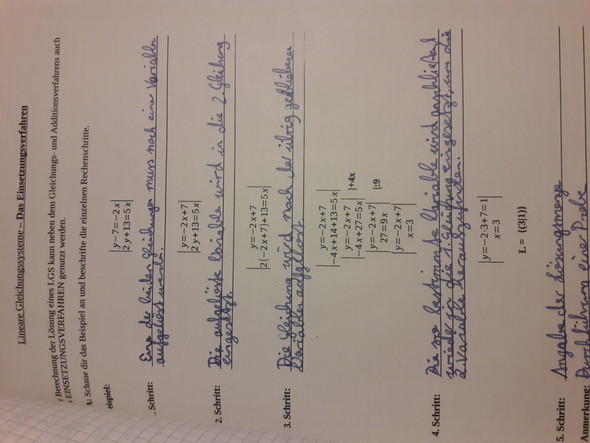 Lineare Gleichungssysteme – Das Einsetzungsverfahren
Berechnung der Lösung eines LGS kann neben dem Gleichungs- und Additionsverfahrens auch
EINSETZUNGSVERFAHREN genutzt werden.
Schaue dir das Beispiel an und beschrifte die einzelnen Rechenschritte.
eispiel:
|y−7=−2x|
|2y+13=5x|
. Schritt: Eine der beiden Gleichungen muss nach einer Variablen
aufgelöst werden.
|y=−2x+7|
|2y+13=5x|
2. Schritt: Die aufgelöste Variable wird in die 2 Gleichung
eingesetzt.
|y=−2x+7|
|2(−2x+7)+13=5x|
3. Schritt: Die Gleichung wird nach der übrig gebliebenen
Variablen aufgelöst.
|y=−2x+7|
|−4x+14+13=5x|
|y=−2x+7|
|−4x+27=5x| |+4x
|y=−2x+7|
|27=9x| |:9
|y=−2x+7|
|x=3|
4. Schritt: Die so bestimmte Variable wird anschließend
wieder in die 1. Gleichung eingesetzt, um die
2. Variable herauszufinden.
|y=−2·3+7=1|
|x=3|
L = {(3|1)}
5. Schritt: Angabe der Lösungsmenge
Anmerkung: Durchführung einer Probe